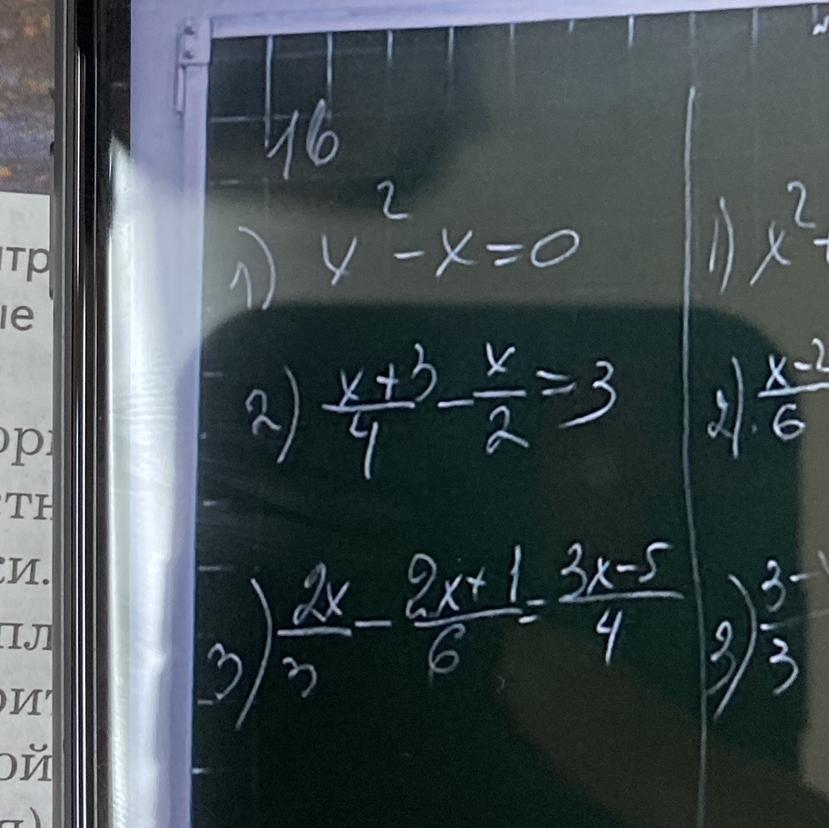 16
1) x² - x = 0
2) \frac{x+3}{4} - \frac{x}{2} = 3
3) \frac{2x}{3} - \frac{2x+1}{6} = \frac{3x-5}{4}
1) x²
2) \frac{x-2}{6}
3) \frac{3-}{3}
тр
ие
ор
стн
си.
пл
рит
ой